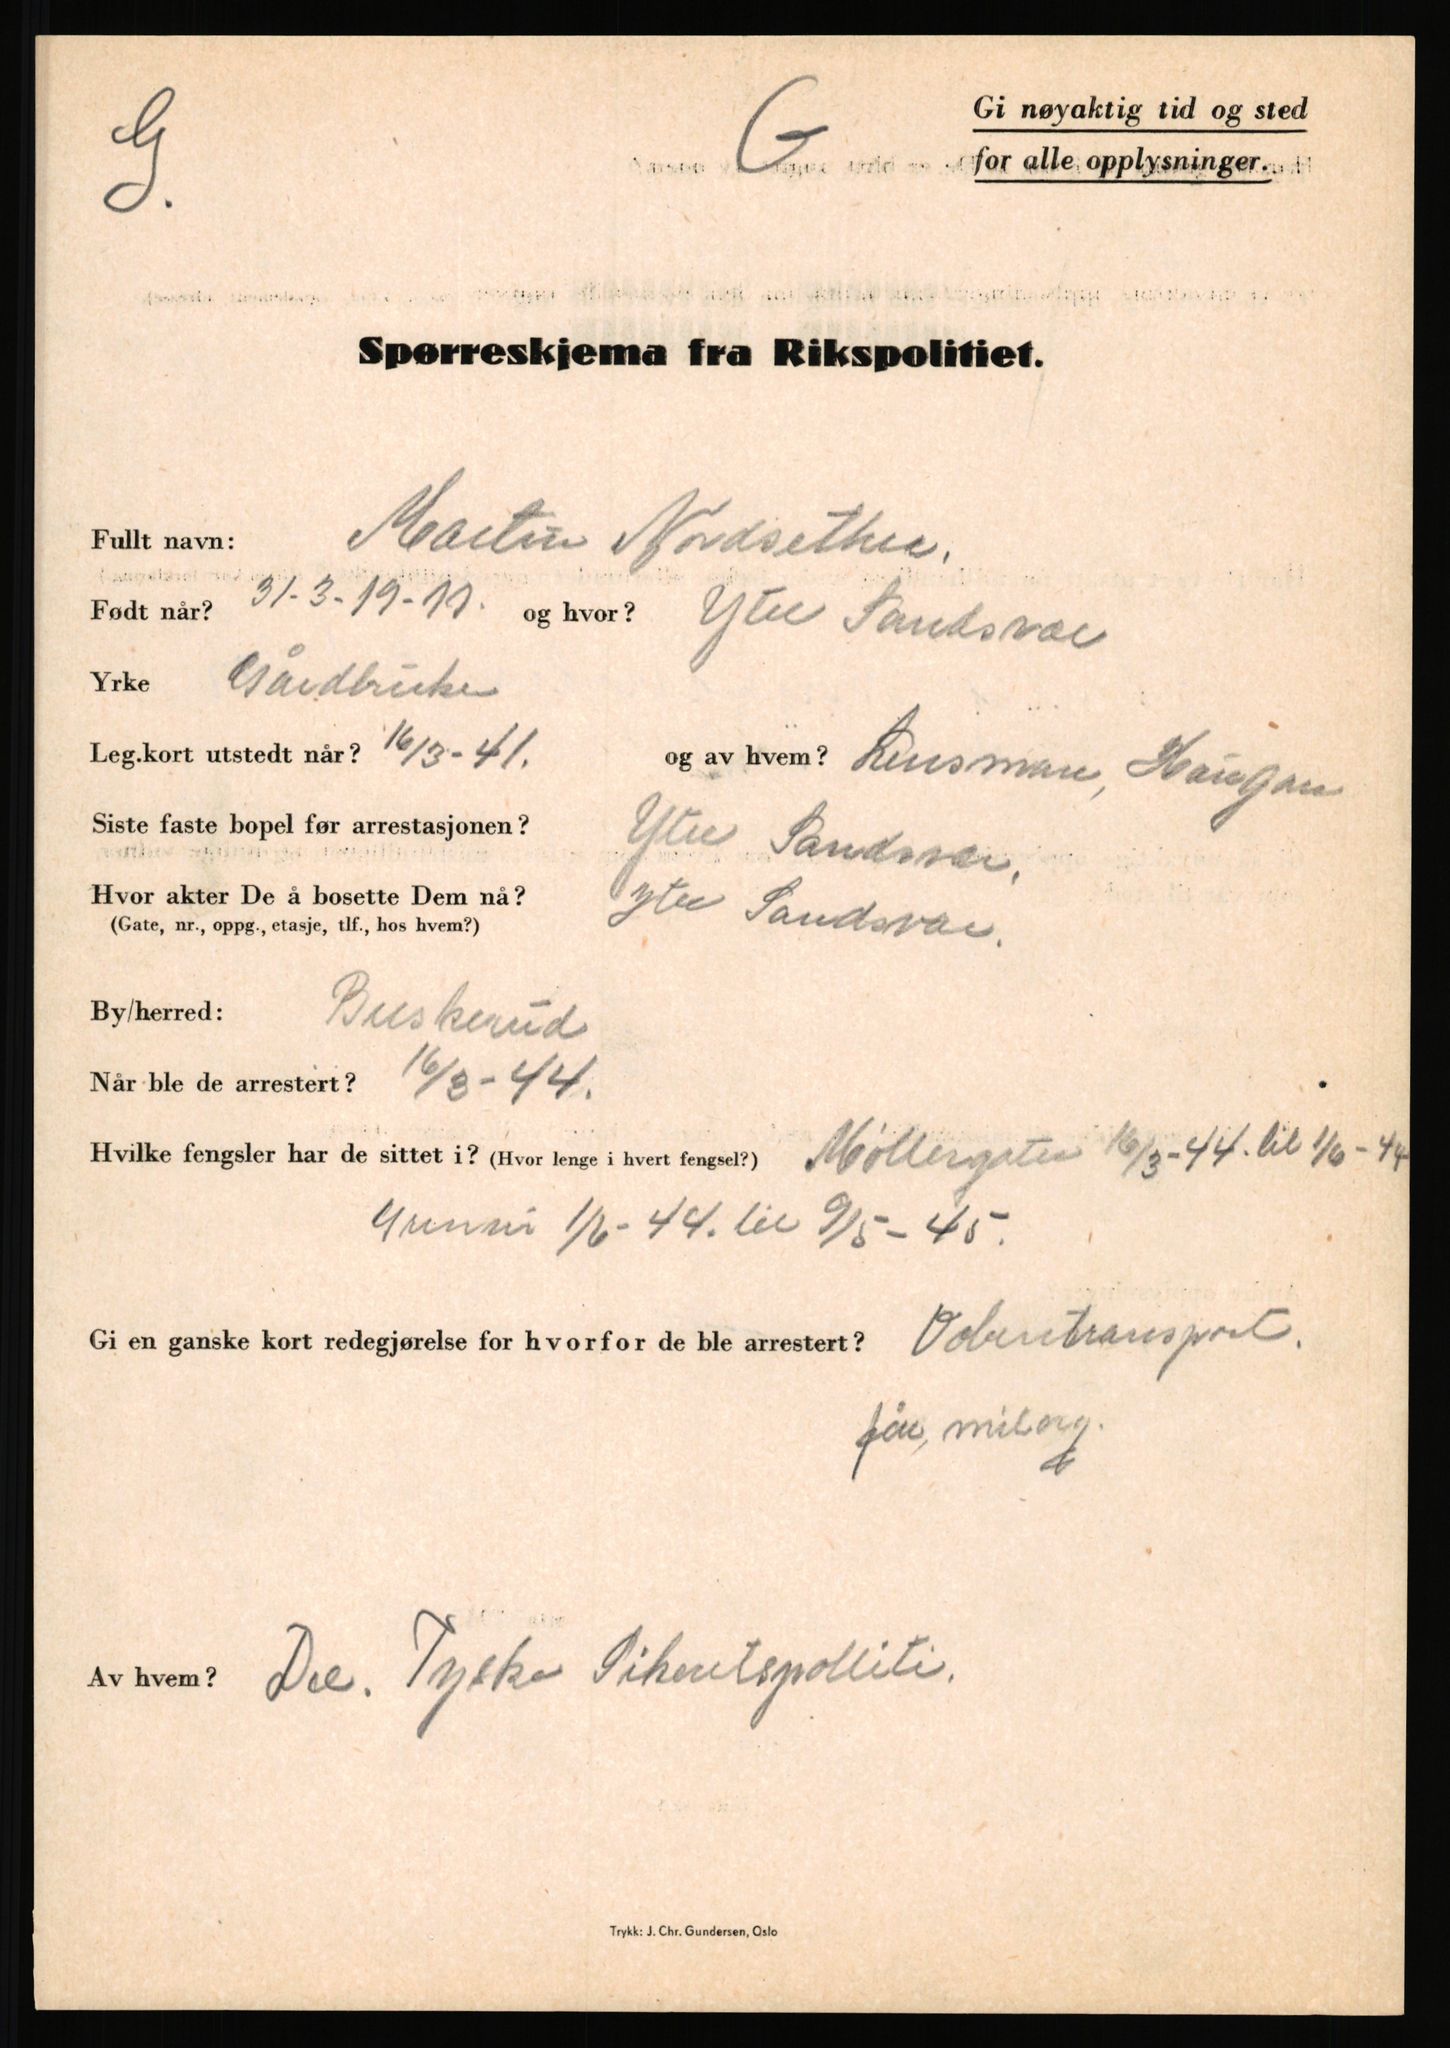 G. G Gi nøyaktig tid og sted
for alle opplysninger.
Spørreskjema fra Rikspolitiet.
Fullt navn: Martin Nordsether.
Født når? 31-3-19-11. og hvor? Ytre Sandsvær
Yrke Gårdbruker
Leg.kort utstedt når? 16/3-41. og av hvem? Lensman, Haugan
Siste faste bopel før arrestasjonen? Ytre Sandsvær.
Hvor akter De å bosette Dem nå? ytre Sandsvær.
(Gate, nr., oppg., etasje, tlf., hos hvem?)
By/herred: Buskerud
Når ble de arrestert? 16/3-44.
Hvilke fengsler har de sittet i? (Hvor lenge i hvert fengsel?) Møllergaten 16/3-44. til 1/6-44
Grinni 1/6-44. til 9/5-45.
Gi en ganske kort redegjørelse for hvorfor de ble arrestert? Vobentransport.
før, milorg.
Av hvem? Det. Tyske Sikeretspolliti.
Trykk: J. Chr. Gundersen, Oslo